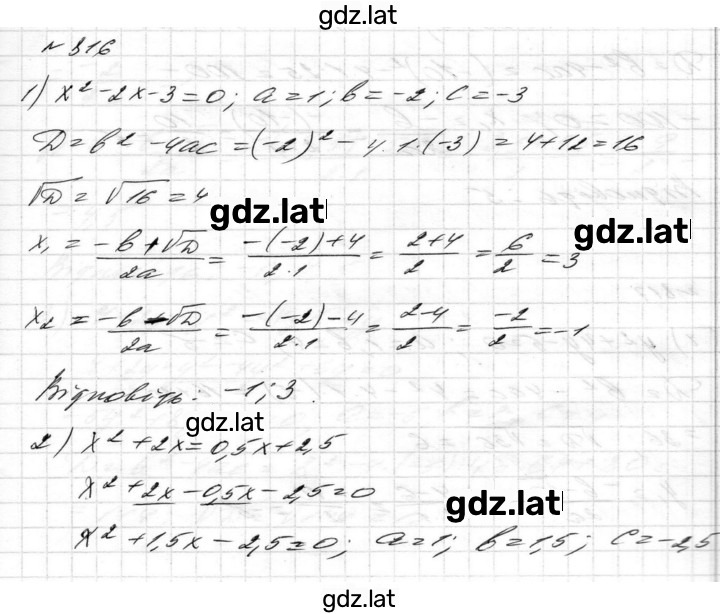 gdz.lat
№ 316
1) x² - 2x - 3 = 0; a = 1; b = -2; c = -3
D = b² - 4ac = (-2)² - 4·1·(-3) = 4 + 12 = 16
√D = √16 = 4
gdz.lat
gdz.lat
x₁ = (-b + √D)/2a = (-(-2) + 4)/2·1 = (2 + 4)/2 = 6/2 = 3
x₂ = (-b - √D)/2a = (-(-2) - 4)/2·1 = (2 - 4)/2 = -2/2 = -1
Відповідь: -1; 3.
gdz.lat
2) x² + 2x = 0,5x + 2,5
x² + 2x - 0,5x - 2,5 = 0
gdz.lat
x² + 1,5x - 2,5 = 0; a = 1; b = 1,5; c = -2,5
gdz.lat